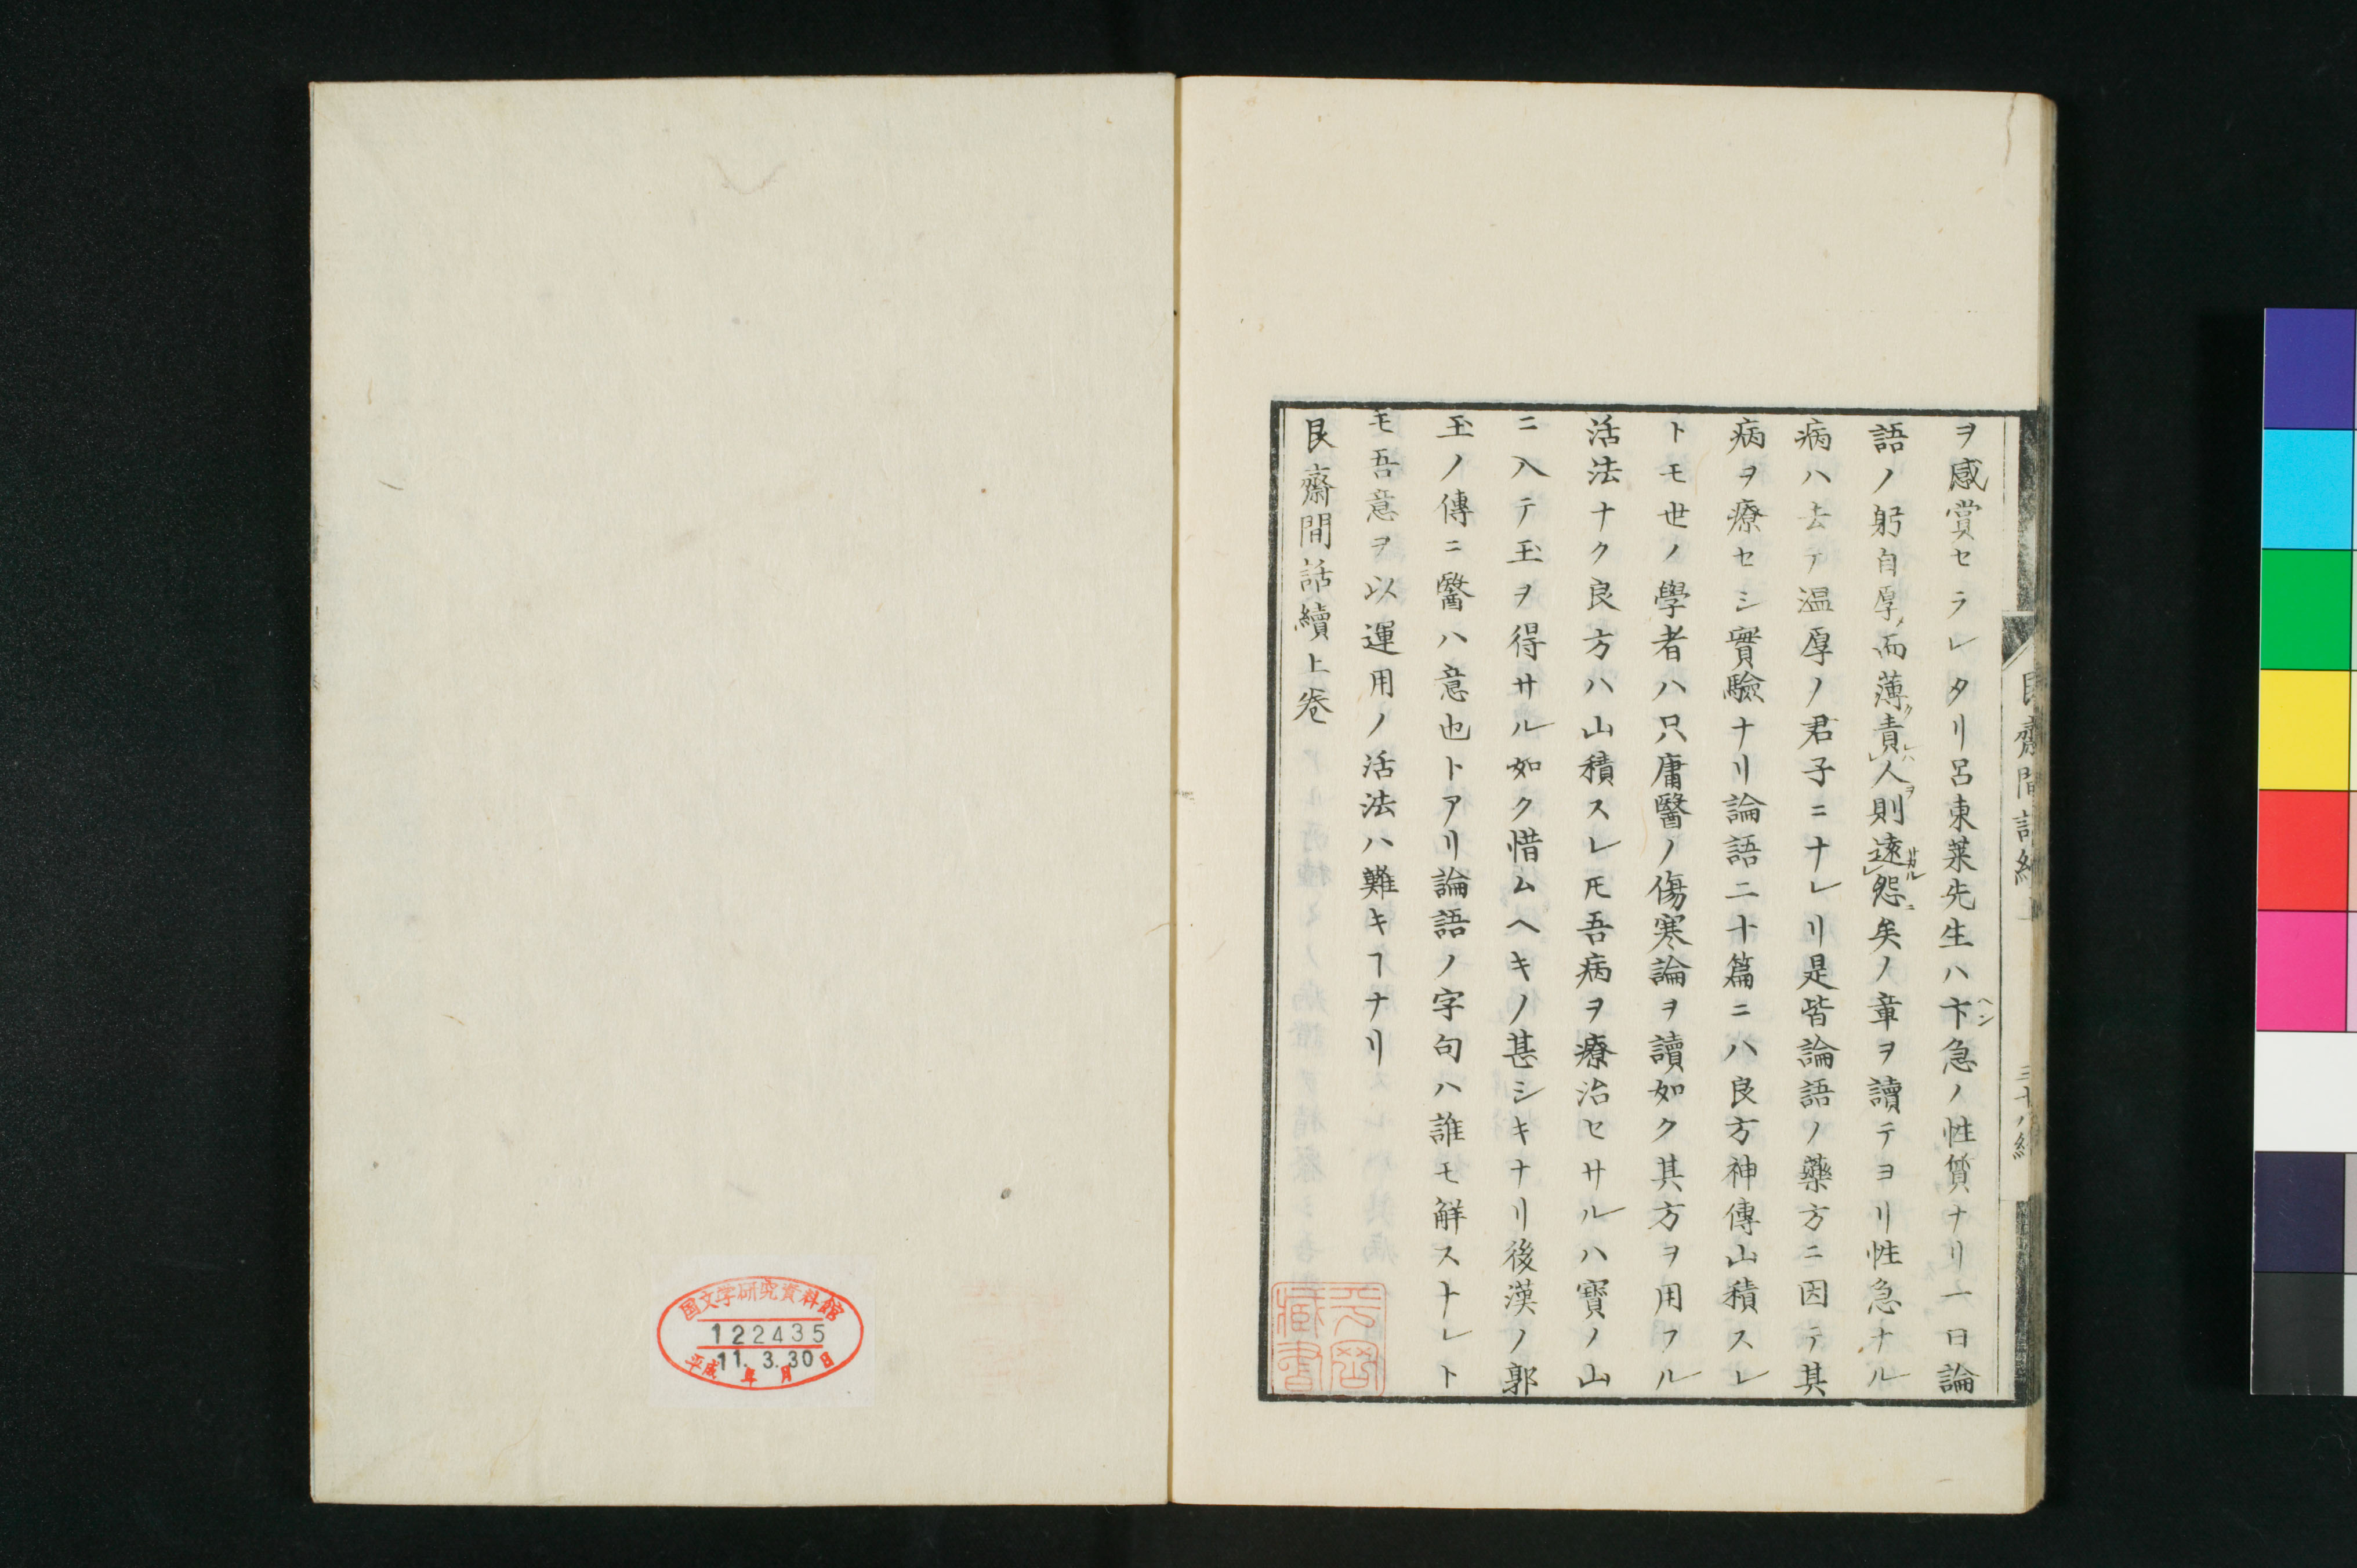 ヲ感賞セラレタリ呂東莱先生ハ卞急ノ性質ナリ一日論
語ノ躬自厚而薄責人則遠怨矣ノ章ヲ讀テヨリ性急ナル
病ハ去テ温厚ノ君子ニナレリ是皆論語ノ藥方ニ因テ其
病ヲ療セシ實驗ナリ論語二十篇ニハ良方神傳山積スレ
トモ世ノ學者ハ只庸醫ノ傷寒論ヲ讀如ク其方ヲ用フル
活法ナク良方ハ山積スレ𪜈吾病ヲ療治セサルハ寶ノ山
ニ入テ玉ヲ得サル如ク惜ムヘキノ甚シキナリ後漢ノ郭
玉ノ傳ニ醫ハ意也トアリ論語ノ字句ハ誰モ解ストナレト
モ吾意ヲ以運用ノ活法ハ難キヿナリ
艮齋間話續上巻
国文学研究資料館
122435
平成11年3月30日